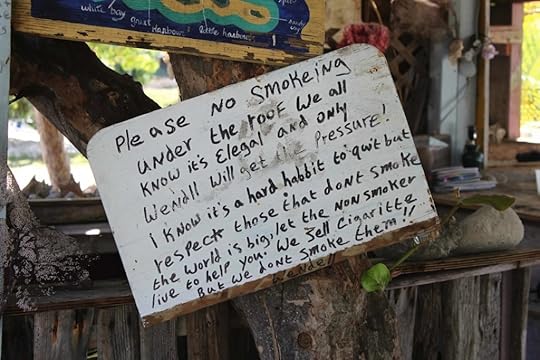 white bay great Harbour little harbour
Please NO SMOKEING
UNDER the roof We all
KNOW it's Elegal and only
Wendll Will get Pressure!
I KNOW it's a hard habbit to quit but
respect those that dont smoke
the World is big/let the NON SMOKER
live to help you. We Sell Cigaritte
But We dont Smoke them!!
Wendell